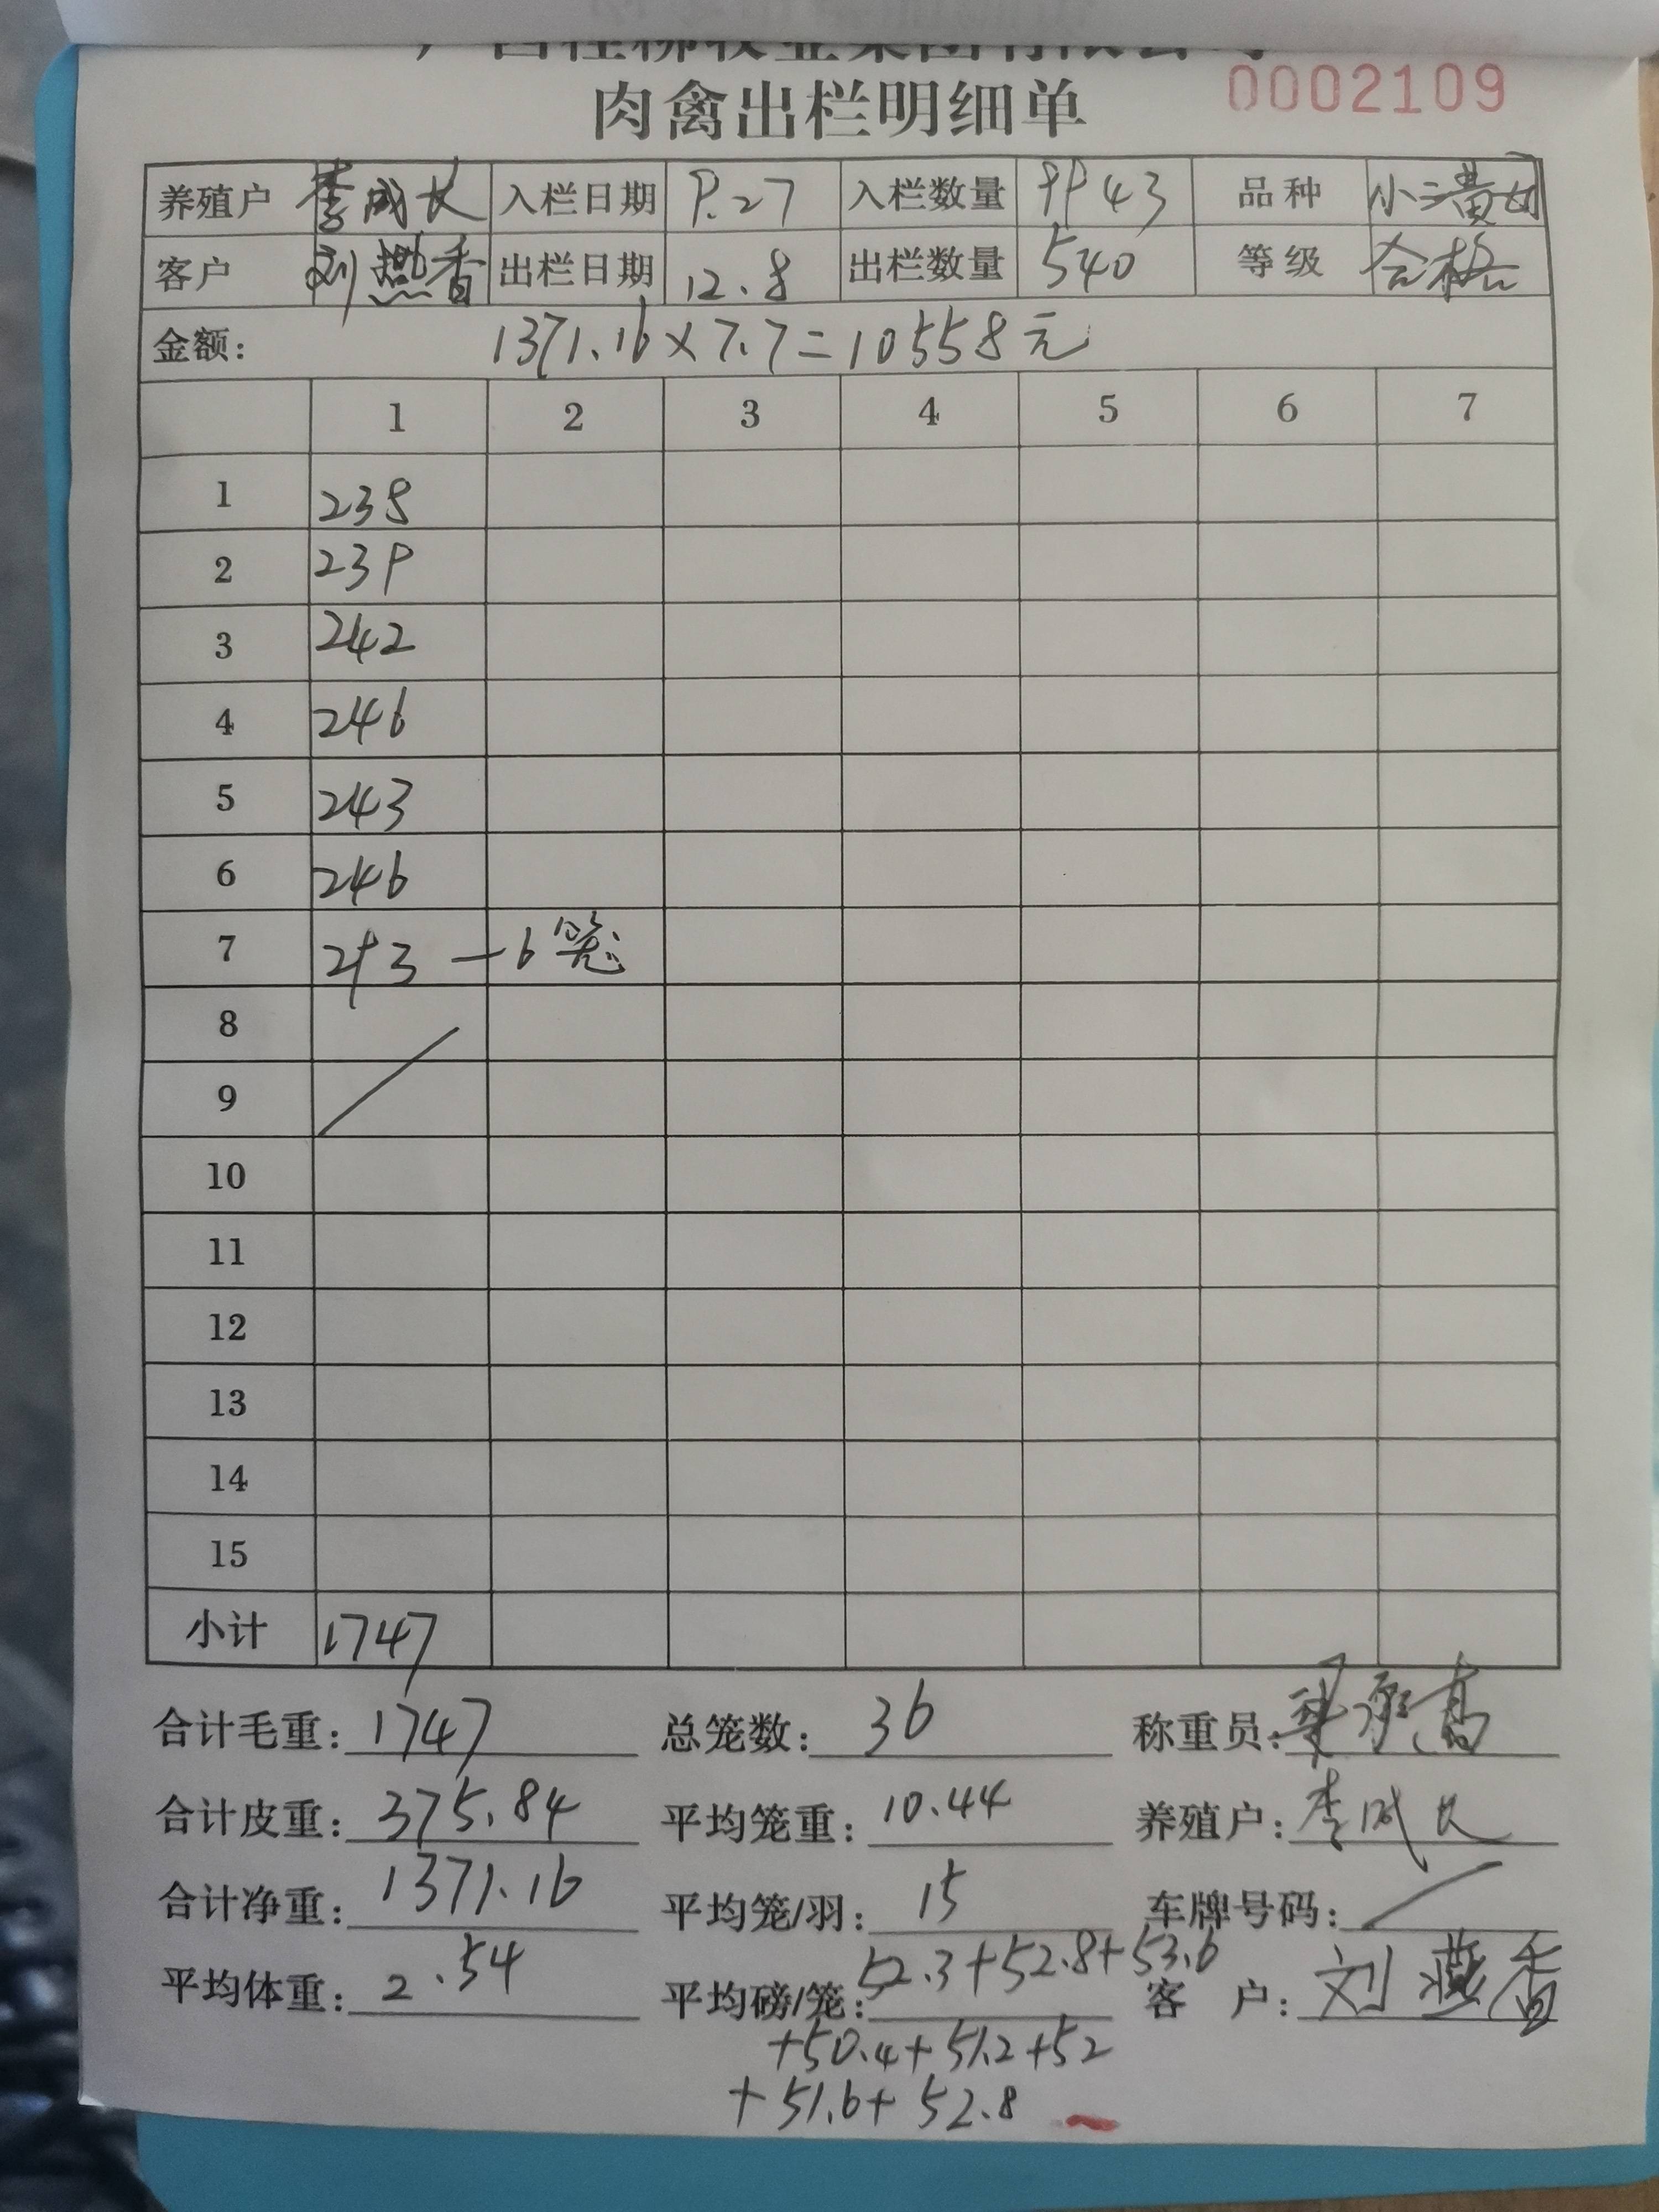 广西桂柳牧业集团有限公司
0002109
肉禽出栏明细单
养殖户 李成长 入栏日期 9.27 入栏数量 9943 品种 小三黄
客户 刘燕香 出栏日期 12.8 出栏数量 540 等级 合格
金额: 1371.16×7.7=10558元
1 2 3 4 5 6 7
1 238
2 239
3 242
4 246
5 243
6 246
7 293 —6笼
8
9
10
11
12
13
14
15
小计 1747
合计毛重: 1747 总笼数: 36 称重员:
合计皮重: 375.84 平均笼重: 10.44 养殖户: 李成长
合计净重: 1371.16 平均笼/羽: 15 车牌号码:
平均体重: 2.54 平均磅/笼: 52.3+52.8+53.6 客 户: 刘燕香
+50.4+51.2+52
+51.6+52.8